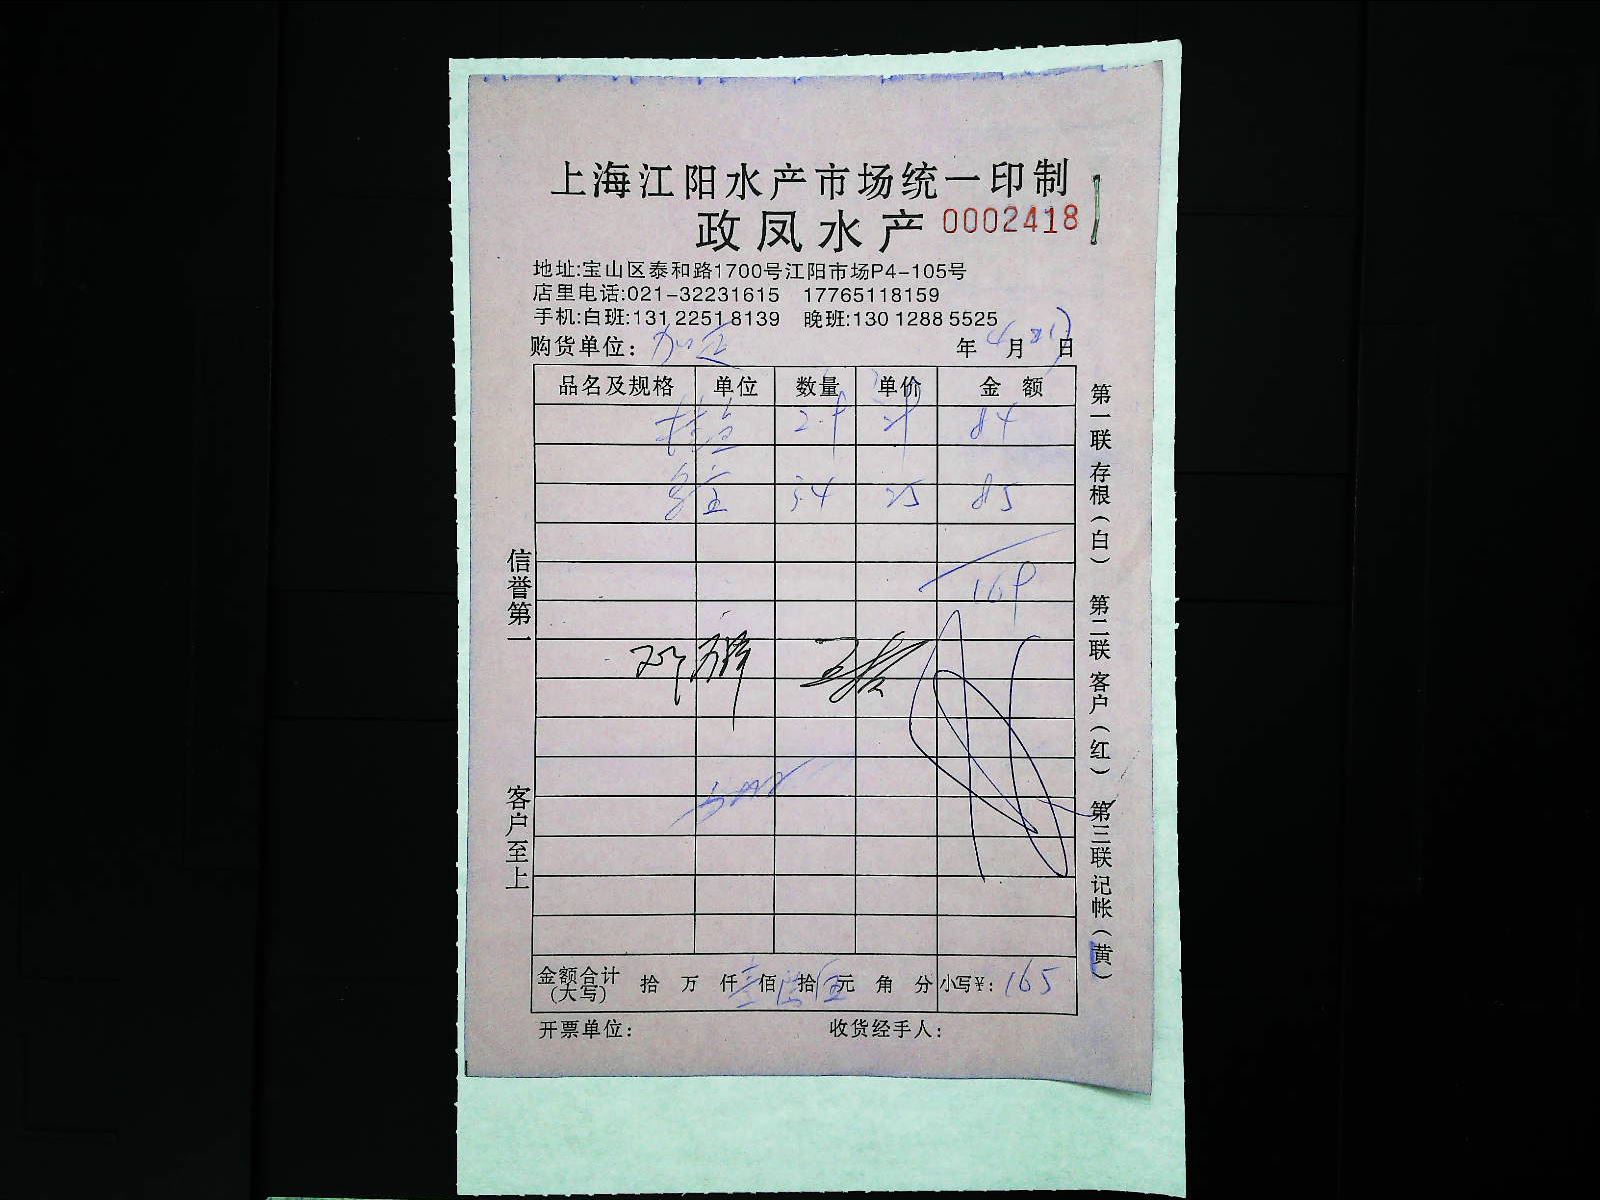 上海江阳水产市场统一印制
政凤水产 0002418
地址:宝山区泰和路1700号江阳市场P4-105号
店里电话:021-32231615 17765118159
手机:白班:131 2251 8139 晚班:130 1288 5525
购货单位: 年4月 日
品名及规格 单位 数量 单价 金额
84
3.4 25 85
169
金额合计(大写) 拾 万 仟 佰 拾 元 角 分 小写¥: 165
开票单位: 收货经手人:
信誉第一
客户至上
第一联 存根(白) 第二联 客户(红) 第三联 记帐(黄)